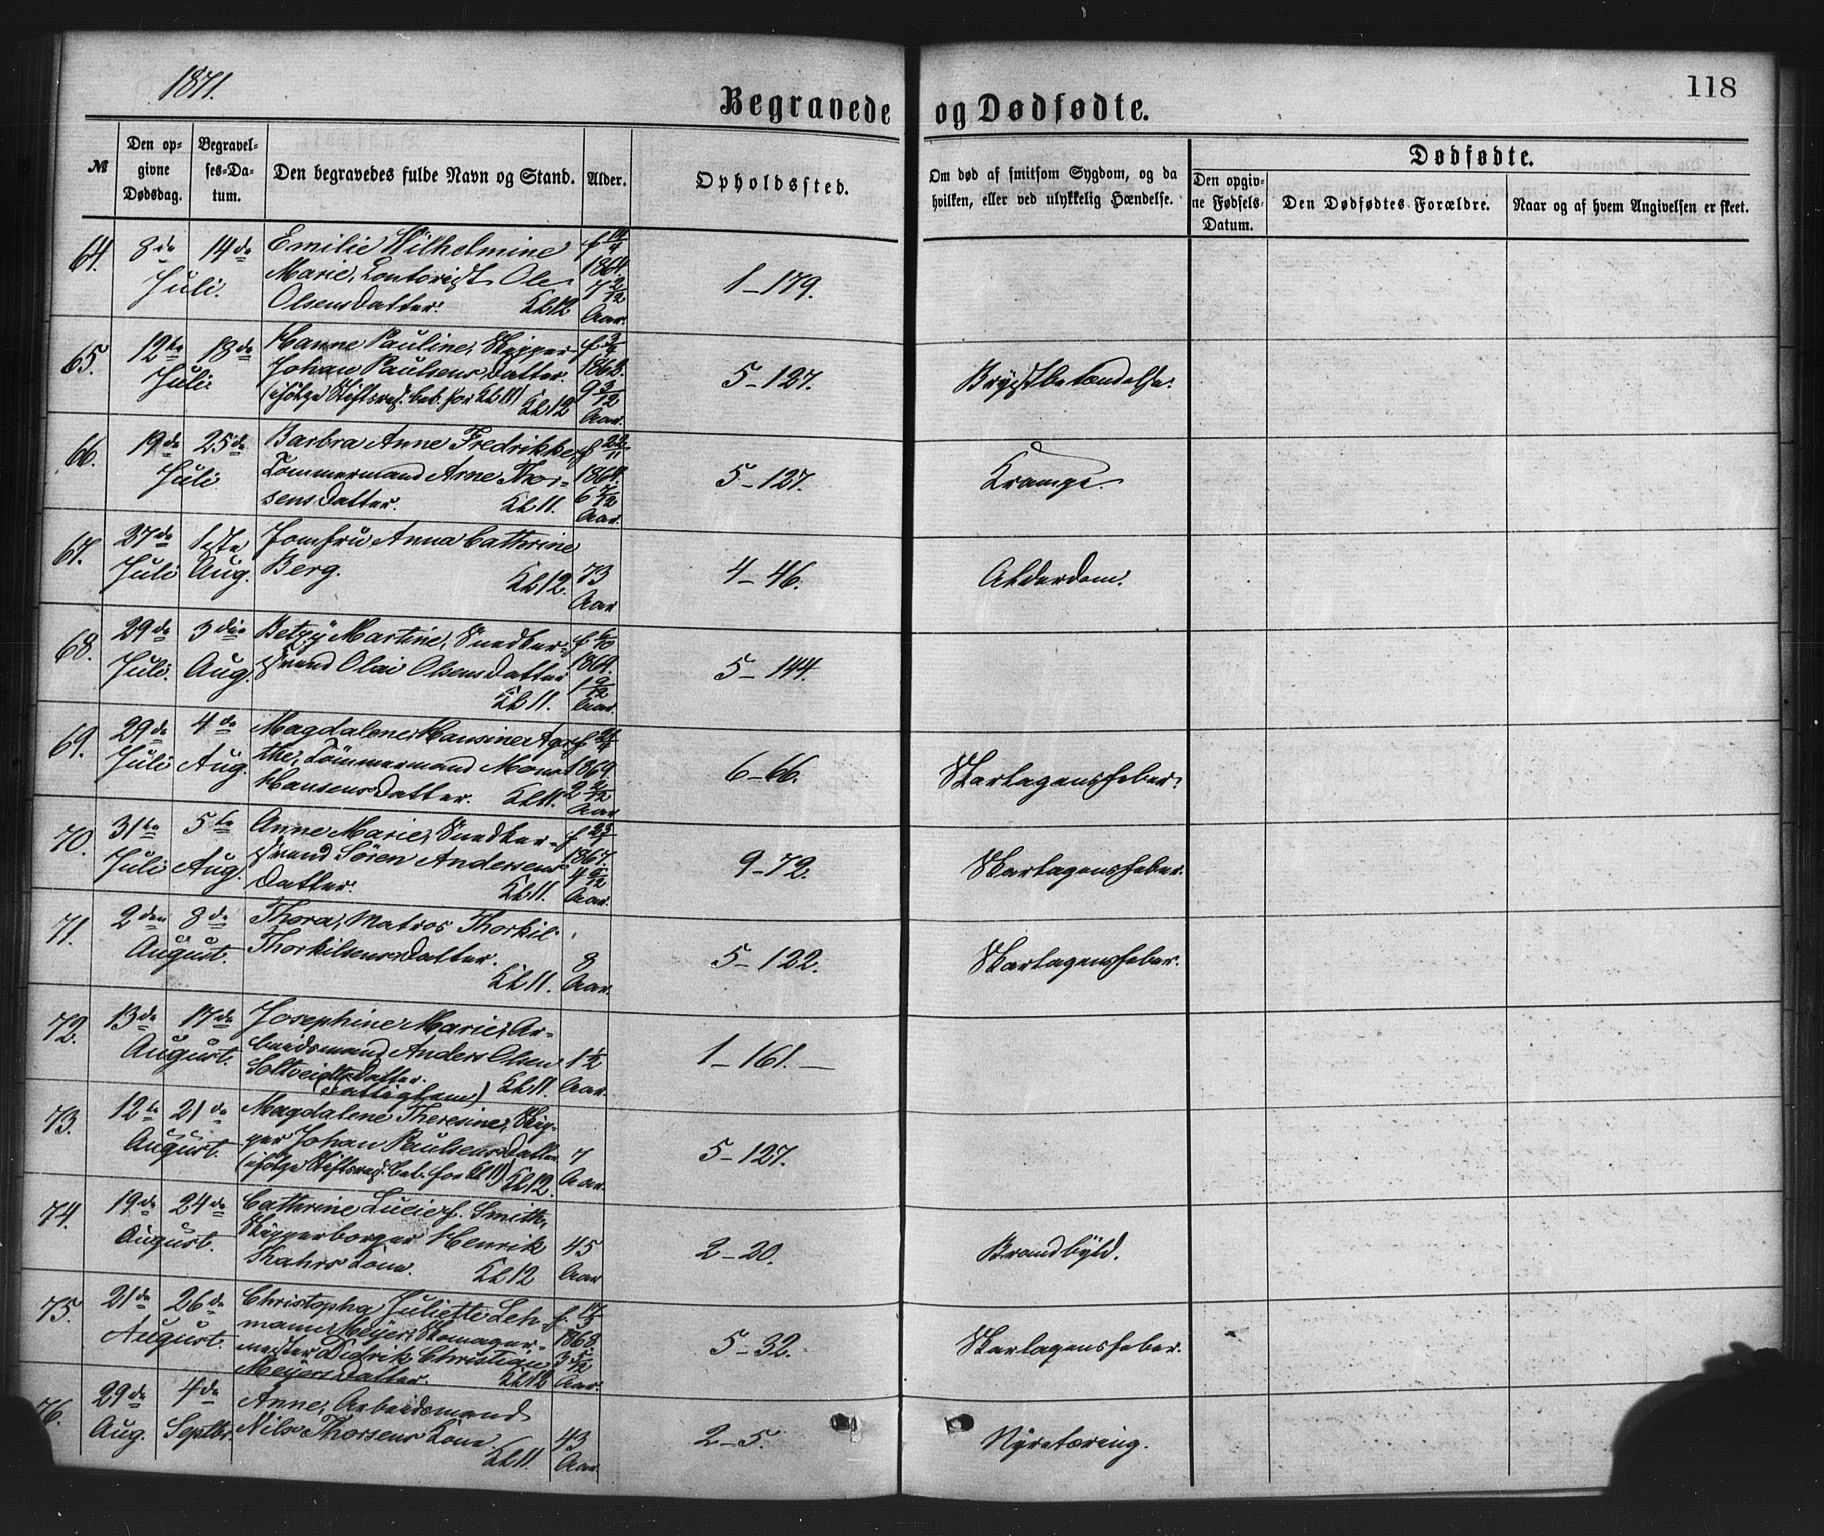 1871.
118
Begravede og Dødfødte.
№
Den op-
givne
Dødsdag.
Begravel-
ses-Da-
tum.
Den begravedes fulde Navn og Stand.
Alder.
Opholdssted.
Om død af smitsom Sygdom, og da
hvilken, eller ved ulykkelig Hændelse.
Dødfødte.
Den opgiv-
ne Fødsels-
Datum.
Den Dødfødtes Forældre.
Naar og af hvem Angivelsen er skeet.
64. 8de Juli. 14de
Emilie Wilhelmine
Marie, Contorist Ole
Olsens Datter. Kl 12
f 1864. 7 2/12 Aar.
1-179.
65. 12te Juli. 18de
Hanne Pauline, Skipper
Johan Paulsens Datter.
(ifølge Stiftsres. bet. for Kl 11) Kl 12
1862. 9 3/12 Aar.
5-127.
Brystbetændelse.
66. 19de Juli 25de
Barbra Anne Fredrikke,
Tømmermand Arne Thor-
sens Datter. Kl 11.
f 22/11 1864. 6 7/12 Aar.
5-127.
Krampe.
67. 27de Juli 1ste Aug.
Jomfru Anna Cathrine
Berg. Kl 12.
73 Aar
4-46.
Alderdom.
68. 29de Juli. 3die Aug.
Betzy Martine, Snedker-
svend Olai Olsens Datter
Kl 11.
f 6/10 1869. 1 9/12 Aar.
5-144.
69. 29de Juli 4de Aug.
Magdalene Hansine Aga-
the, Tømmermand Mons
Hansens Datter. Kl 11.
1869. 2 Aar
6-66.
Skarlagensfeber.
70. 31te Juli 5te Aug.
Anne Marie, Snedker-
svend Søren Andersens
Datter. Kl 11.
f 1867. 4 Aar.
9-72.
Skarlagensfeber.
71. 2den August. 8de
Thora, Matros Thorkil
Thorkilsens Datter.
Kl 11.
8 Aar.
5-122.
Skarlagensfeber.
72. 13de August. 17de
Josephine Marie, Ar-
beidsmand Anders Olsen
Soltveidts Datter.
(Fattiglem) Kl 11.
1 1/2 Aar.
1-161.
73. 12te August. 21de
Magdalene Theresine, Skip-
per Johan Paulsens Datter.
(ifølge Stiftsres. bet. for Kl 11) Kl 12.
7 Aar.
5-127.
74. 19de August. 24de
Cathrine Lucie f. Smith,
Skipperborger Henrik
Kahrs Kone. Kl 12
45 Aar
2-20.
Brandbyld.
75. 21de August. 26de
Christopha Juliette Leh-
mann Meyer, Skomager-
mester Didrik Christian
Meyers Datter. Kl 12
f. 17/3 1868. 3 5/12 Aar.
5-32.
Skarlagensfeber.
76. 29de Aug. 4de Septbr.
Anne, Arbeidsmand
Nils Thorsens Kone
Kl 11.
43 Aar.
2-5.
Nyretæring.